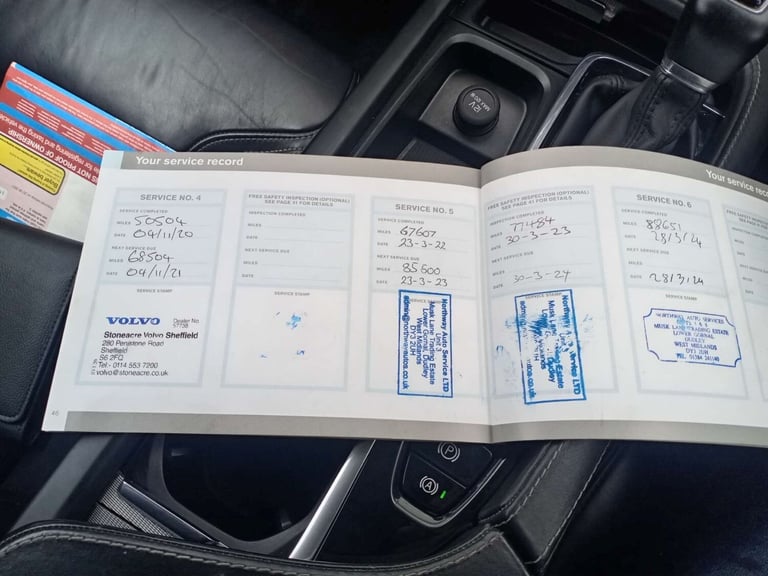 12V
MAX 120 W
IS NOT PROOF OF OWNERSHIP
for registering and taxing the vehicle
Your service record
SERVICE NO. 4
SERVICE COMPLETED
MILES 50504
DATE 04/11/20
NEXT SERVICE DUE
MILES 68504
DATE 04/11/21
SERVICE STAMP
VOLVO
Dealer No.
Stoneacre Volvo Sheffield
280 Penistone Road
Sheffield
S6 2FQ
Tel - 0114 553 7200
volvo@stoneacre.co.uk
46
FREE SAFETY INSPECTION (OPTIONAL)
SEE PAGE 41 FOR DETAILS
INSPECTION COMPLETED
MILES
DATE
NEXT SERVICE DUE
MILES
DATE
SERVICE STAMP
SERVICE NO. 5
SERVICE COMPLETED
MILES 67607
DATE 23-3-22
NEXT SERVICE DUE
MILES 85600
DATE 23-3-23
SERVICE STAMP
Northway Auto Service LTD
Unit 3
Musk Land Trading Estate
Lower Gornal, Dudley
West Midlands
DY3 2UH
admin@northwayautos.co.uk
FREE SAFETY INSPECTION (OPTIONAL)
SEE PAGE 41 FOR DETAILS
INSPECTION COMPLETED
MILES 77484
DATE 30-3-23
NEXT SERVICE DUE
MILES
DATE 30-3-24
SERVICE STAMP
Your service reco
SERVICE NO. 6
SERVICE COMPLETED
MILES 88651
DATE 28/3/24
NEXT SERVICE DUE
MILES
DATE 28/3/24
SERVICE STAMP
NORTHWAY AUTO SERVICES
MUSK LAND TRADING ESTATE
LOWER GORNAL
DUDLEY
WEST MIDLANDS
DY3 2UH
P
A